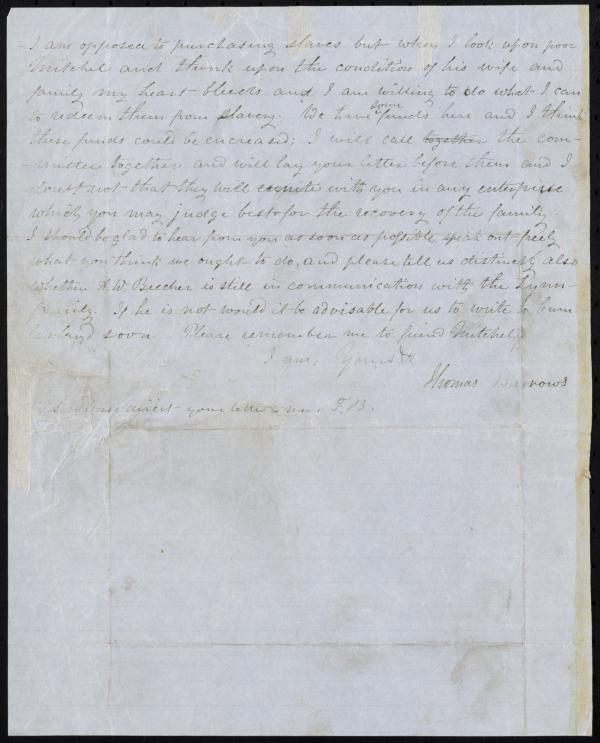 I am opposed to purchasing slaves but when I look upon poor
Mitchel and think upon the condition of his wife and
family my heart bleeds and I am willing to do what I can
to redeem them from slavery. We have some funds here and I think
these funds could be encreased; I will call together the com-
-mittee together and will lay your letter before them and I
doubt not that they will unite with you in any enterprise
which you may judge best for the recovery of the family.
I should be glad to hear from you as soon as possible, speak out freely
what you think we ought to do, and please tell us distinctly also
whether H W Beecher is still in communication with the
family. If he is not would it be advisable for us to write to
soon. Please remember me to friend Mitchel
I am, Yours &c
Thomas Burrows
please direct your letter to me. T.B.